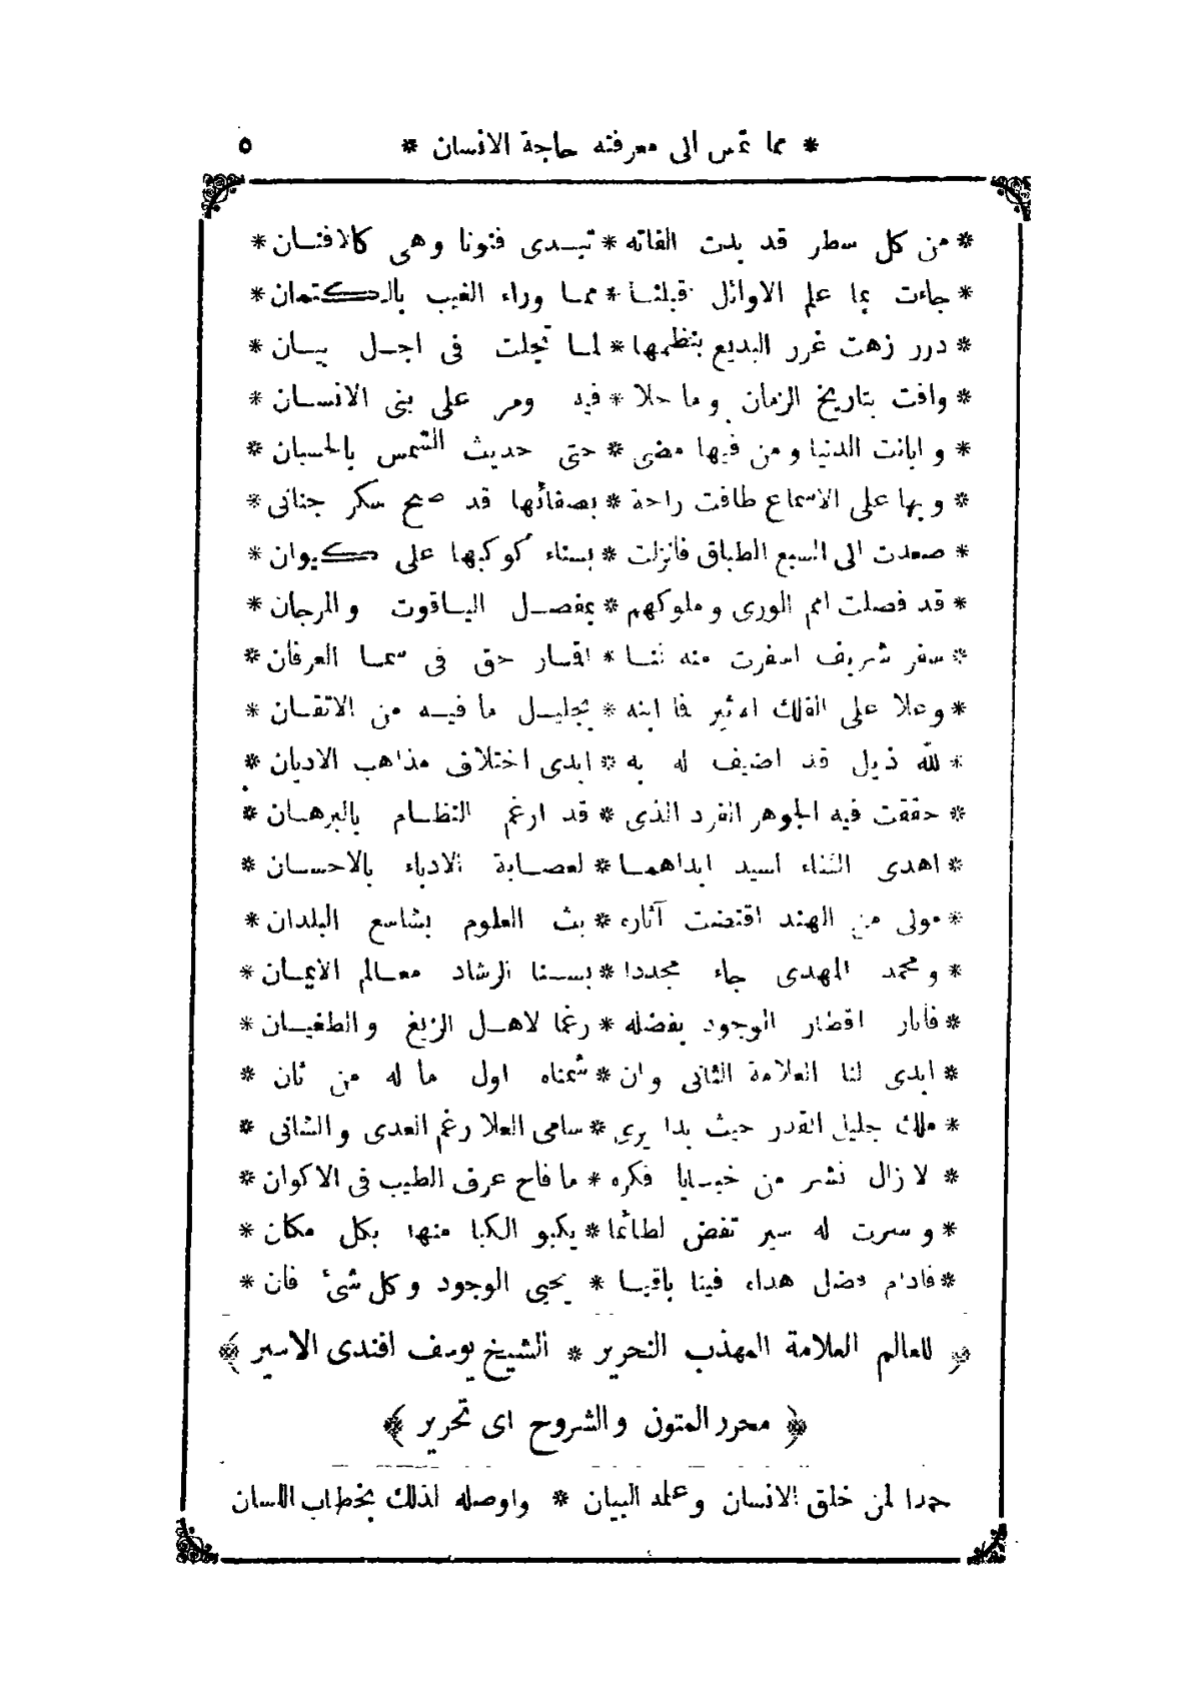 * مما تمس الى معرفته حاجة الانسان * ٥
* من كل سطر قد بدت الفاته * تبـدى فنونا وهى كالافنـان *
* جاءت بما علم الاوائل قبلنـا * ممـا وراء الغيب بالكتمان *
* درر زهت غرر البديع بنظمها * لمـا تجلت فى اجـل بيـان *
* وافت بتاريخ الزمان وما حلا * فيه ومر على بنى الانسـان *
* و ابانت الدنيا ومن فيها مضى * حتى حديث الشمس بالحسبان *
* وبها على الاسماع طافت راحة * بصفائها قد صح سكر جنانى *
* صعدت الى السبع الطباق فانزلت * بسناء كوكبها على كيوان *
* قد فصلت امم الورى وملوكهم * بمفصـل اليـاقوت والمرجان *
* سفر شريف اسفرت منه لنـا * اقمـار حق فى سمـا العرفان *
* وعلا على الفلك الاثير فا ابنه * بجليـل ما فيـه من الاتقـان *
* لله ذيل قد اضيف له به * ابدى اختلاف مذاهب الاديان *
* حققت فيه الجوهر الفرد الذى * قد ارغم النظـام بالبرهـان *
* اهدى الثناء لسيد ابداهمـا * لعصـابة الادباء بالاحسـان *
* مولى من الهند اقتضت آثاره * بث العلوم بشاسع البلدان *
* ومحمد المهدى جاء مجددا * بسـنا الرشاد معـالم الايمـان *
* فانار اقطار الوجود بفضله * رغما لاهـل الزيغ والطغيـان *
* ابدى لنا العلامة الثانى وان * شمناه اول ما له من ثان *
* ملك جليل القدر حيث بدا يرى * سامى العلا رغم العدى والشانى *
* لا زال نشر من خبـايا فكره * ما فاح عرف الطيب فى الاكوان *
* وسرت له سير تفض لطائما * يكبو الكبا منها بكل مكان *
* فادام فضل هداه فينا باقيـا * يحيى الوجود وكل شئ فان *
﴿ للعالم العلامة المهذب النحرير * الشيخ يوسف افندى الاسير ﴾
﴿ محرر المتون والشروح اى تحرير ﴾
حمدا لمن خلق الانسان وعلمه البيان * واوصله لذلك بخطاب اللسان